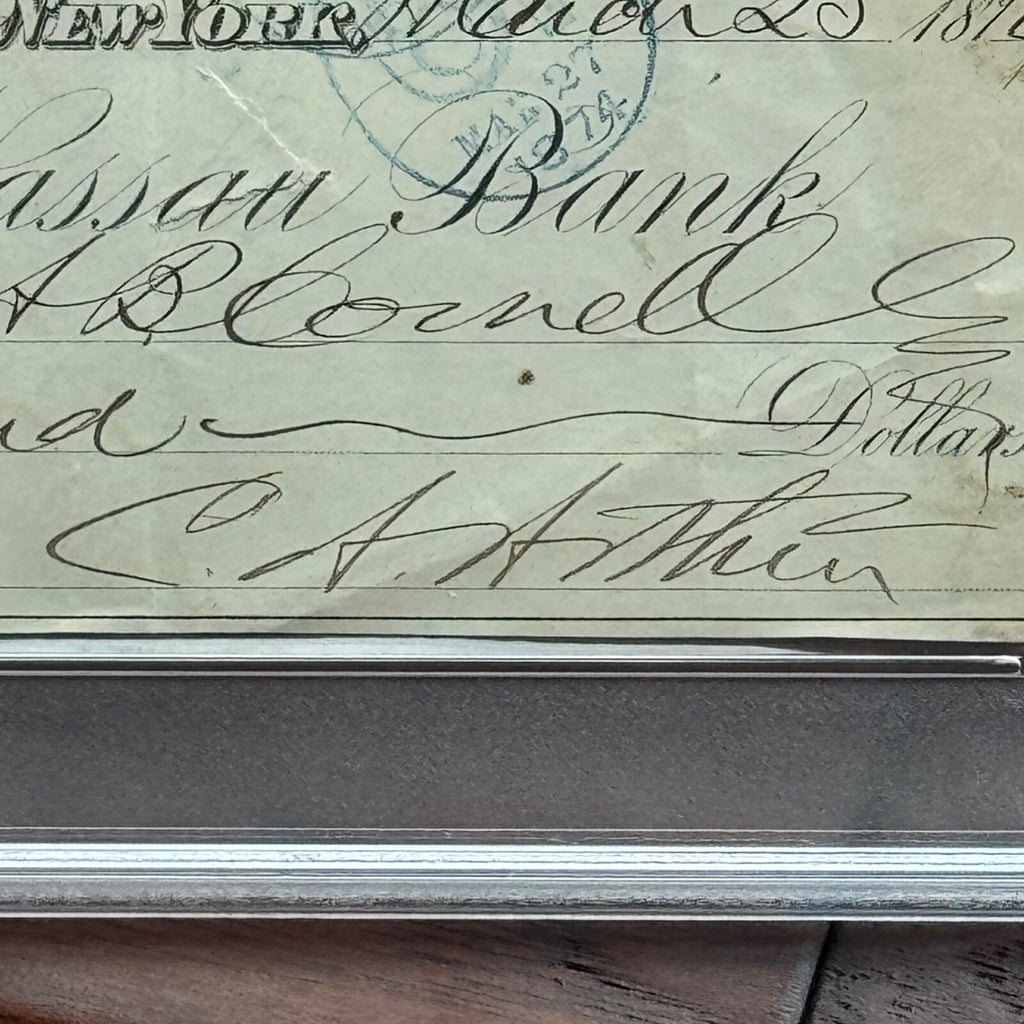 NEW YORK, March 25 187
MAR 27
74
assau Bank
A B Cornell
d Dollars
C. A. Arthur